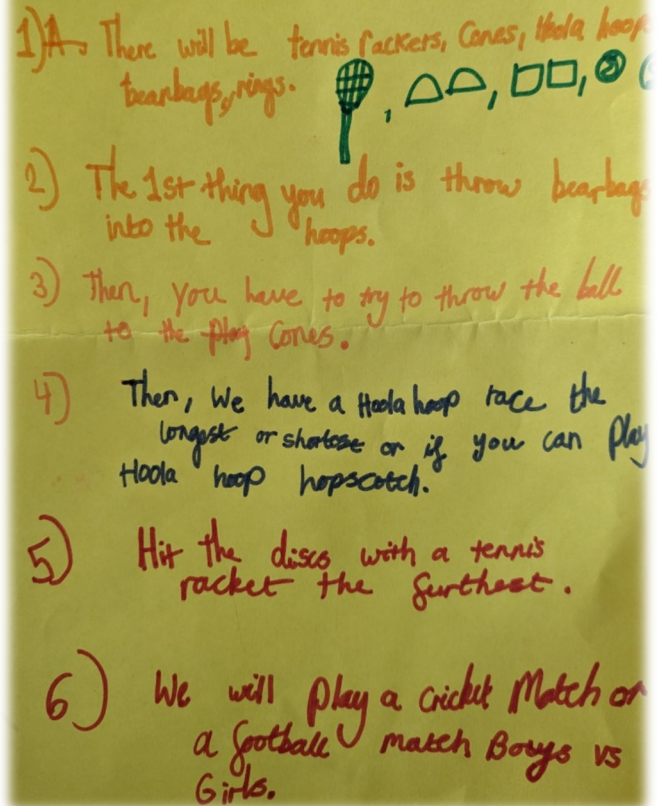 1) A There will be tennis rackers, Cones, Hoola hoop
beanbags, rings.
2) The 1st thing you do is throw beanbags
into the hoops.
3) Then, you have to try to throw the ball
to the play Cones.
4) Then, we have a Hoola hoop race the
longest or shortest or if you can play
Hoola hoop hopscotch.
5) Hit the discs with a tennis
racket the furthest.
6) We will play a cricket Match or
a football match Boys vs
Girls.